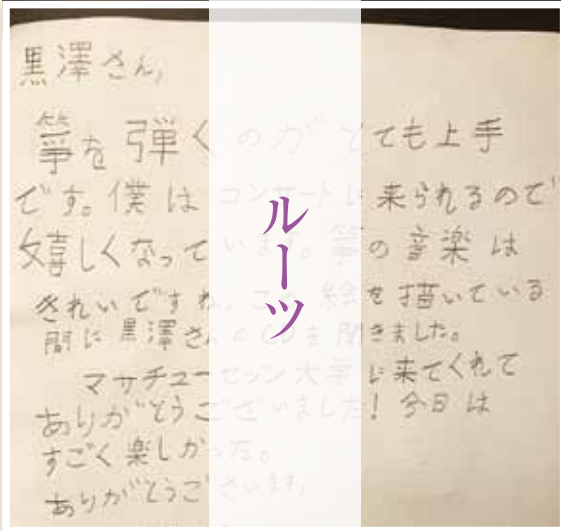 黒澤さん,
箏を弾くのがとても上手
です。僕はコンサートに来られるので
嬉しくなっています。箏の音楽は
きれいですね。この絵を描いている
間に黒澤さんのCDを聞きました。
マサチューセッツ大学に来てくれて
ありがとうございました!今日は
すごく楽しかった。
ありがとうございます,
ルーツ